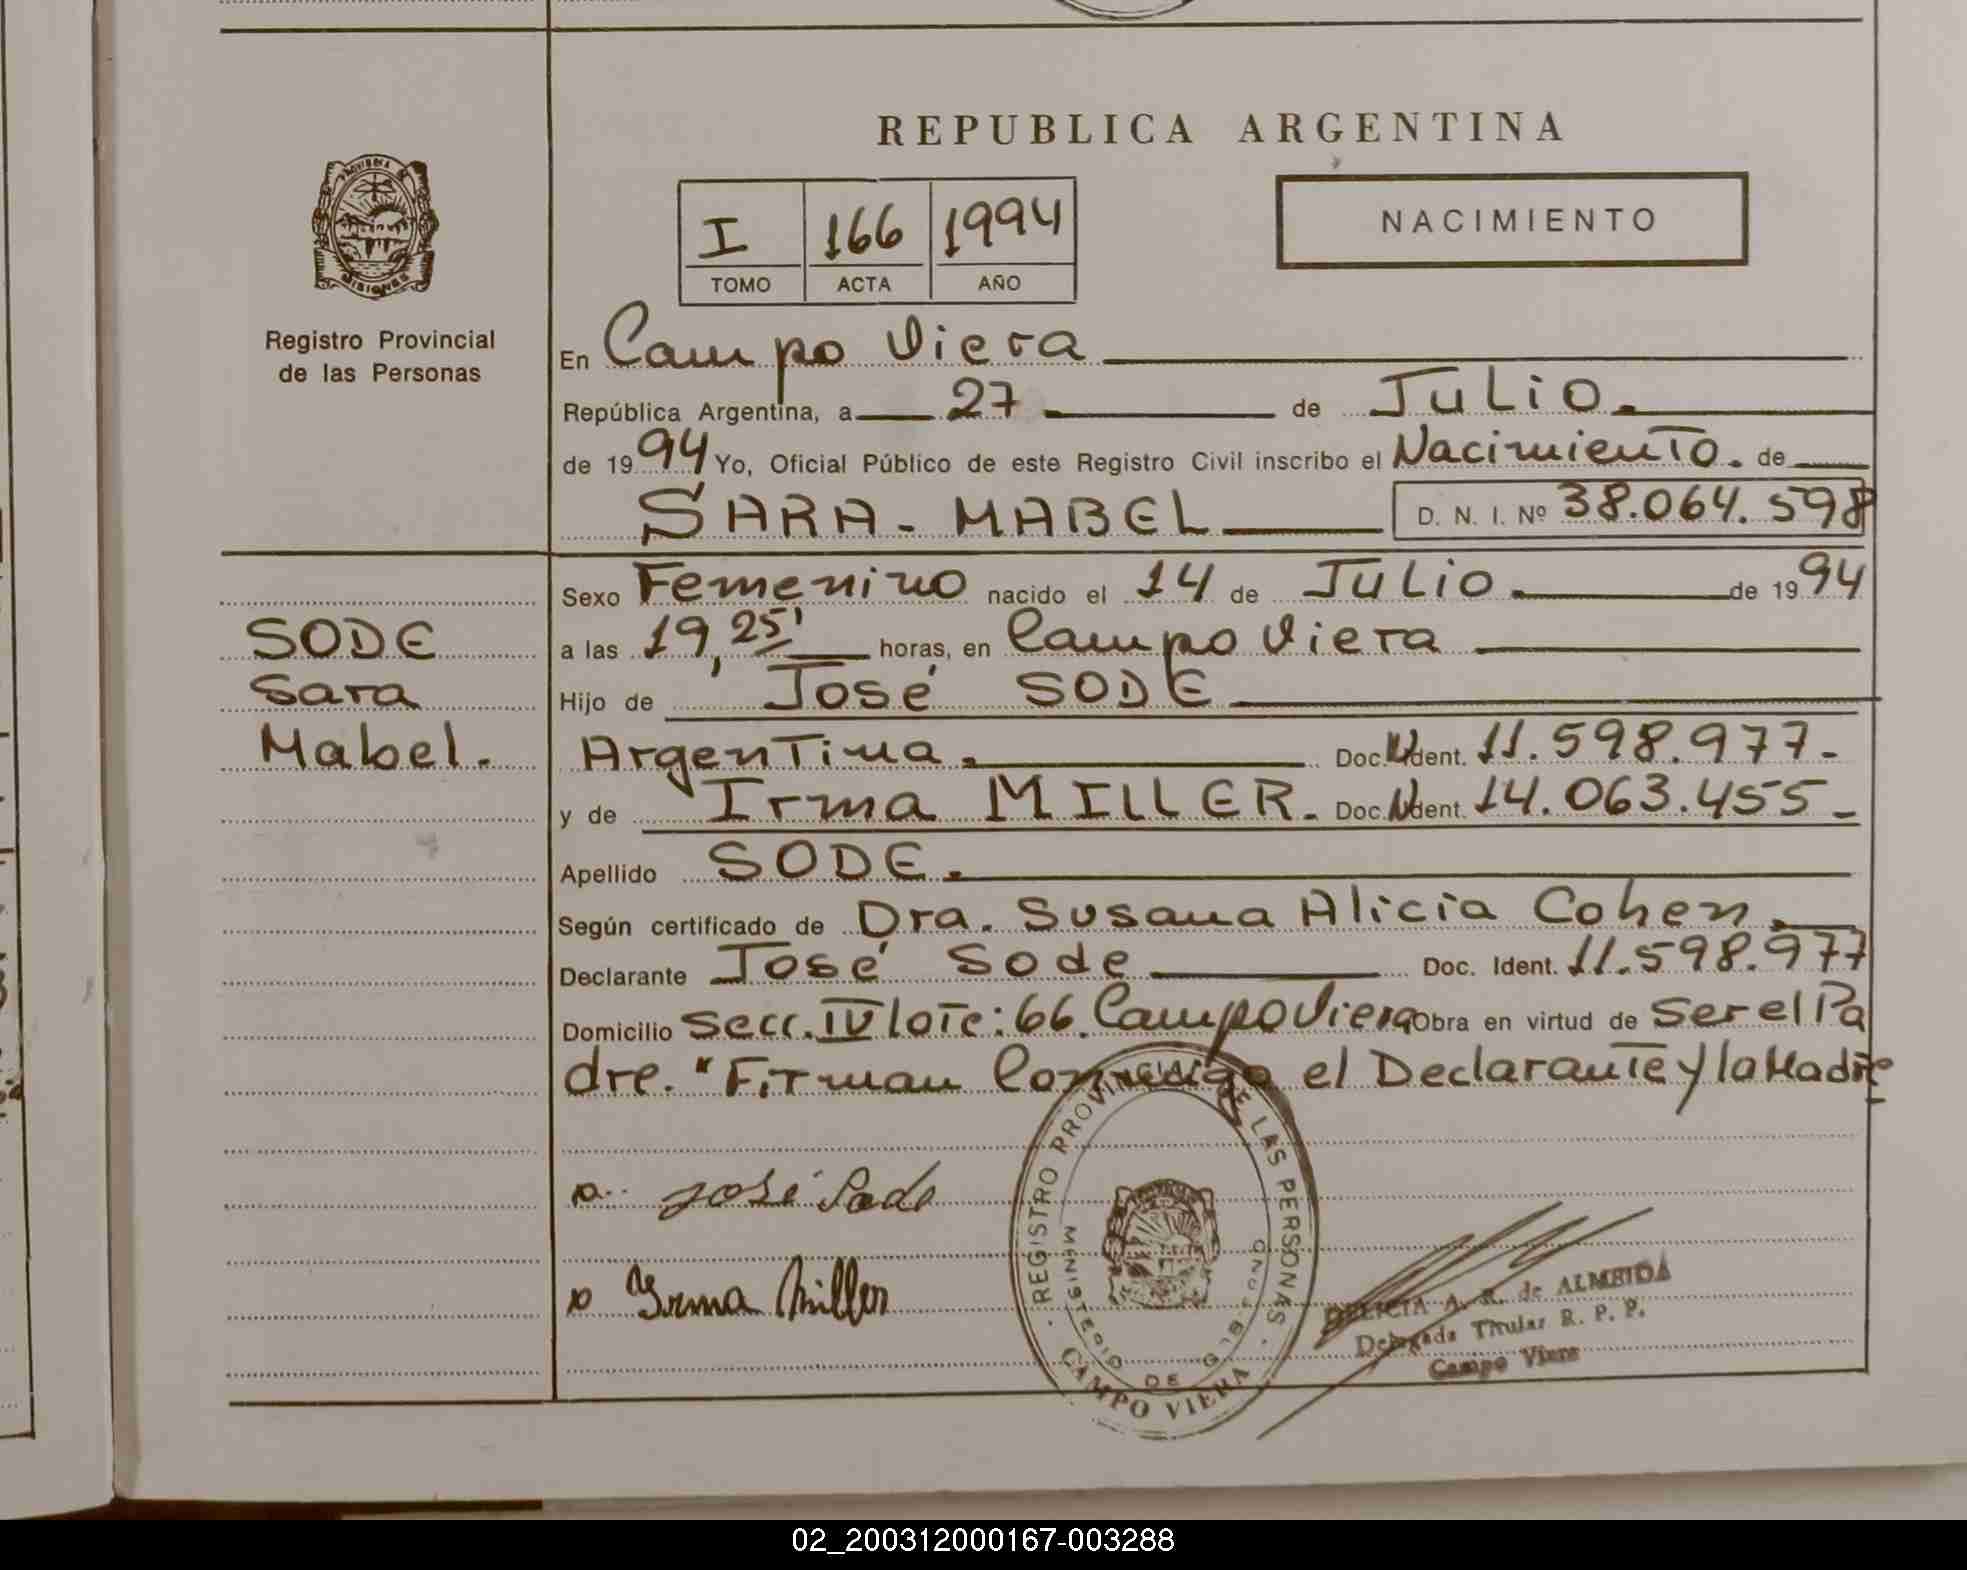 REPUBLICA ARGENTINA
PROVINCIA DE MISIONES
Registro Provincial
de las Personas
I 166 1994
TOMO ACTA AÑO
NACIMIENTO
En Campo Viera
República Argentina, a 27 de Julio.
de 1994 Yo, Oficial Público de este Registro Civil inscribo el Nacimiento. de
SARA - MABEL D. N. I. Nº 38.064.598
SODE
Sara
Mabel.
Sexo Femenino nacido el 14 de Julio de 1994
a las 19,25' horas, en Campo Viera
Hijo de José SODE
Argentina. Doc. Ident. 11.598.977-
y de Irma MILLER. Doc. Ident. 14.063.455-
Apellido SODE.
Según certificado de Dra. Susana Alicia Cohen.
Declarante José Sode Doc. Ident. 11.598.977
Domicilio Secc. IV lote: 66 Campo Viera Obra en virtud de Ser el Pa
dre. "Firman Conmigo el Declarante y la Madre
José Sode
Irma Miller
REGISTRO PROVINCIAL DE LAS PERSONAS
MINISTERIO DE
CAMPO VIERA
DELICIA A. R. de ALMEIDA
Delegada Titular R. P. P.
Campo Viera
02_200312000167-003288